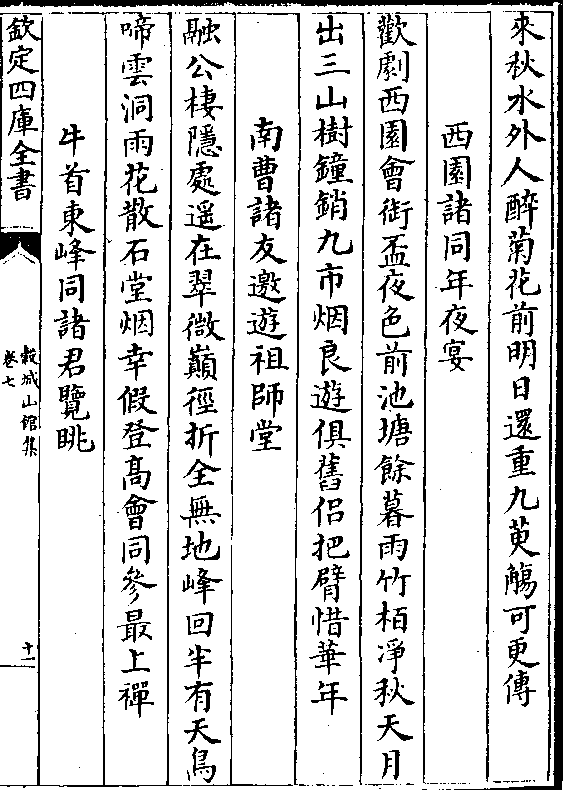 來秋水外人醉菊花前明日還重九萸觴可更傳
西園諸同年夜宴
歡劇西園會銜盃夜色前池塘餘暮雨竹栢淨秋天月
出三山樹鐘銷九市烟良遊俱舊侣把臂惜華年
南曹諸友邀遊祖師堂
融公棲隱處遥在翠微巔徑折全無地峰回半有天鳥
啼雲洞雨花散石堂烟幸假登髙會同參最上禪
牛首東峰同諸君覽眺
欽定四庫全書
穀城山館集
卷七
十一